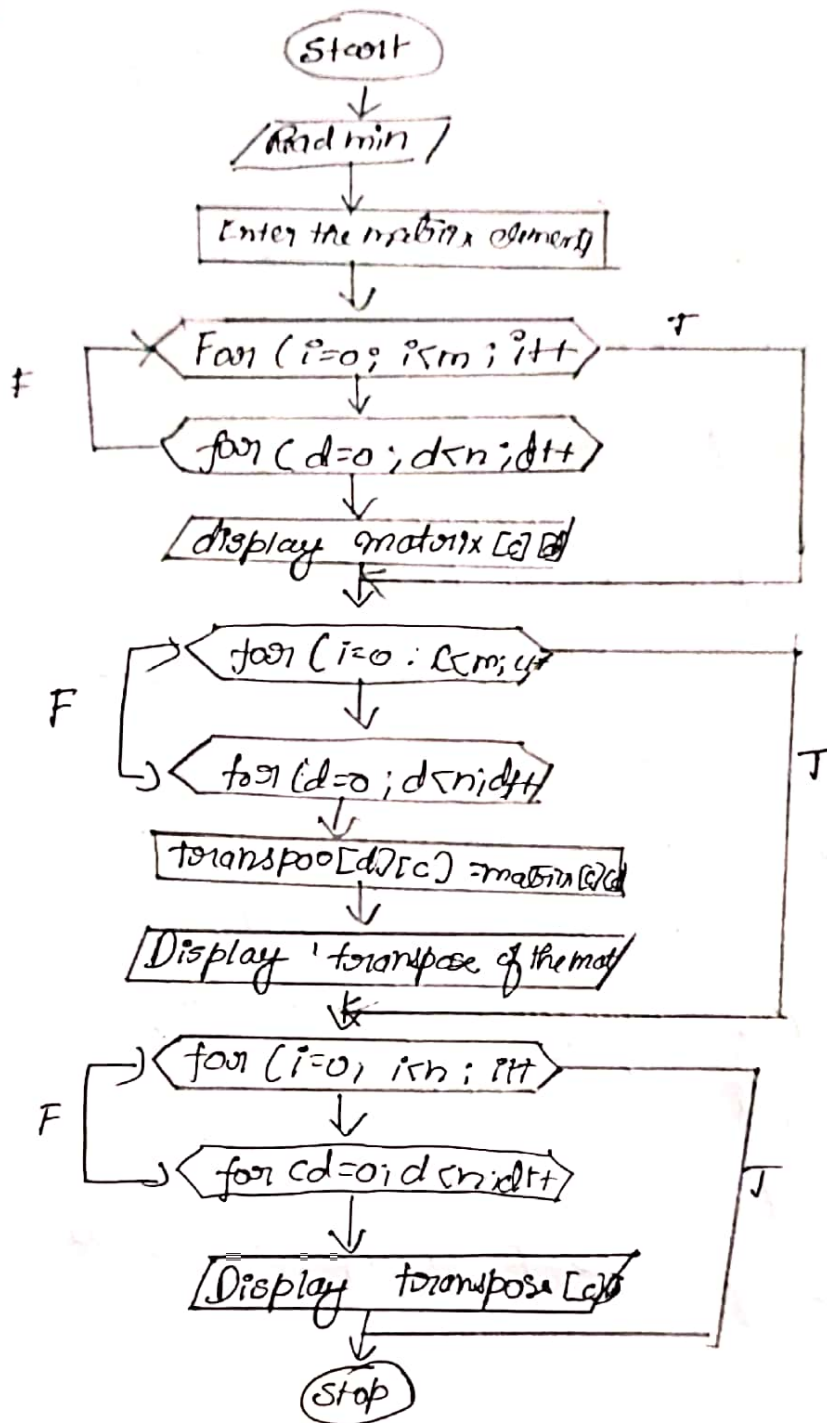 Start
Read min
Enter the matrix elements
For (i=0; i<m; i++
T
F
for (d=0; d<n; d++
display matrix [c] [d]
for (i=0 : i<m;
F
for (d=0; d<n; d++
T
transpoo[d][c] =matrix [c][d]
Display 'transpose of the mat
for (i=0, i<n; i++
F
for cd=0; d<n; d++
T
Display transpose [c]
Stop